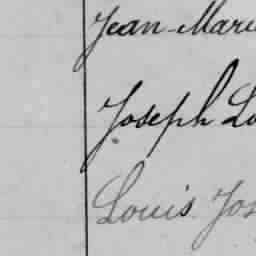 Jean-Marie
Joseph Lo
Louis Jos